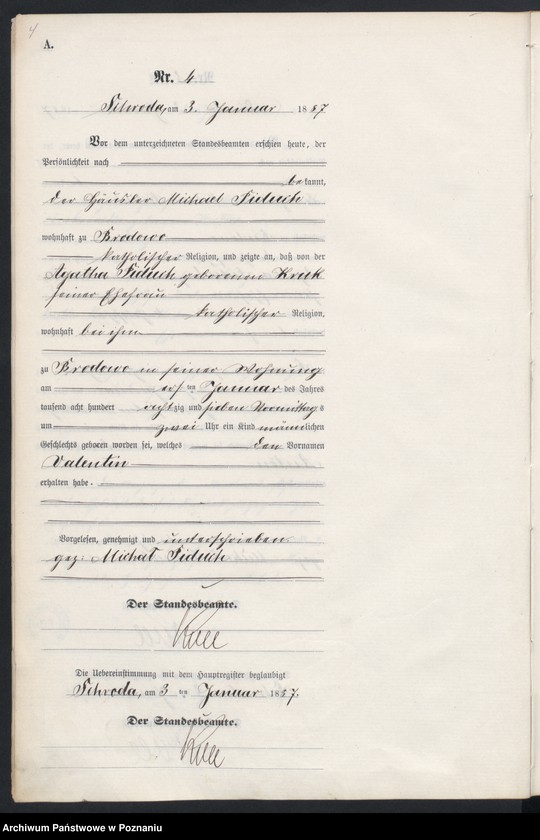 4
A.
Nr. 4
Schroda, am 3. Januar 1887
Vor dem unterzeichneten Standesbeamten erschien heute, der
Persönlichkeit nach
bekannt,
der Häusler Michael Fiduch
wohnhaft zu Brodowo
katholischer Religion, und zeigte an, daß von der
Agatha Fiduch geborenen Kruk
seiner Ehefrau
katholischer Religion,
wohnhaft bei ihm
zu Brodowo in seiner Wohnung
am ersten Januar des Jahres
tausend acht hundert achtzig und sieben Vormittags
um zwei Uhr ein Kind männlichen
Geschlechts geboren worden sei, welches den Vornamen
Valentin
erhalten habe.
Vorgelesen, genehmigt und unterschrieben
gez Michał Fiduch
Der Standesbeamte.
Die Uebereinstimmung mit dem Hauptregister beglaubigt
Schroda, am 3 ten Januar 1887.
Der Standesbeamte.
Archiwum Państwowe w Poznaniu